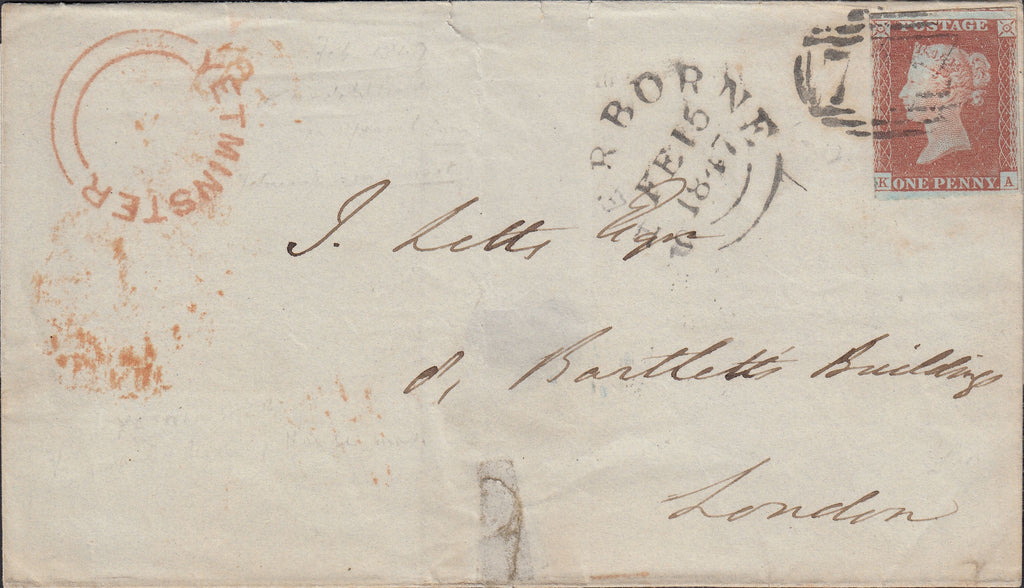 YETMINSTER
SHERBORNE
FE 15
1847
7
POSTAGE
K ONE PENNY A
J. Letts Esqre
8, Bartlett's Buildings
London